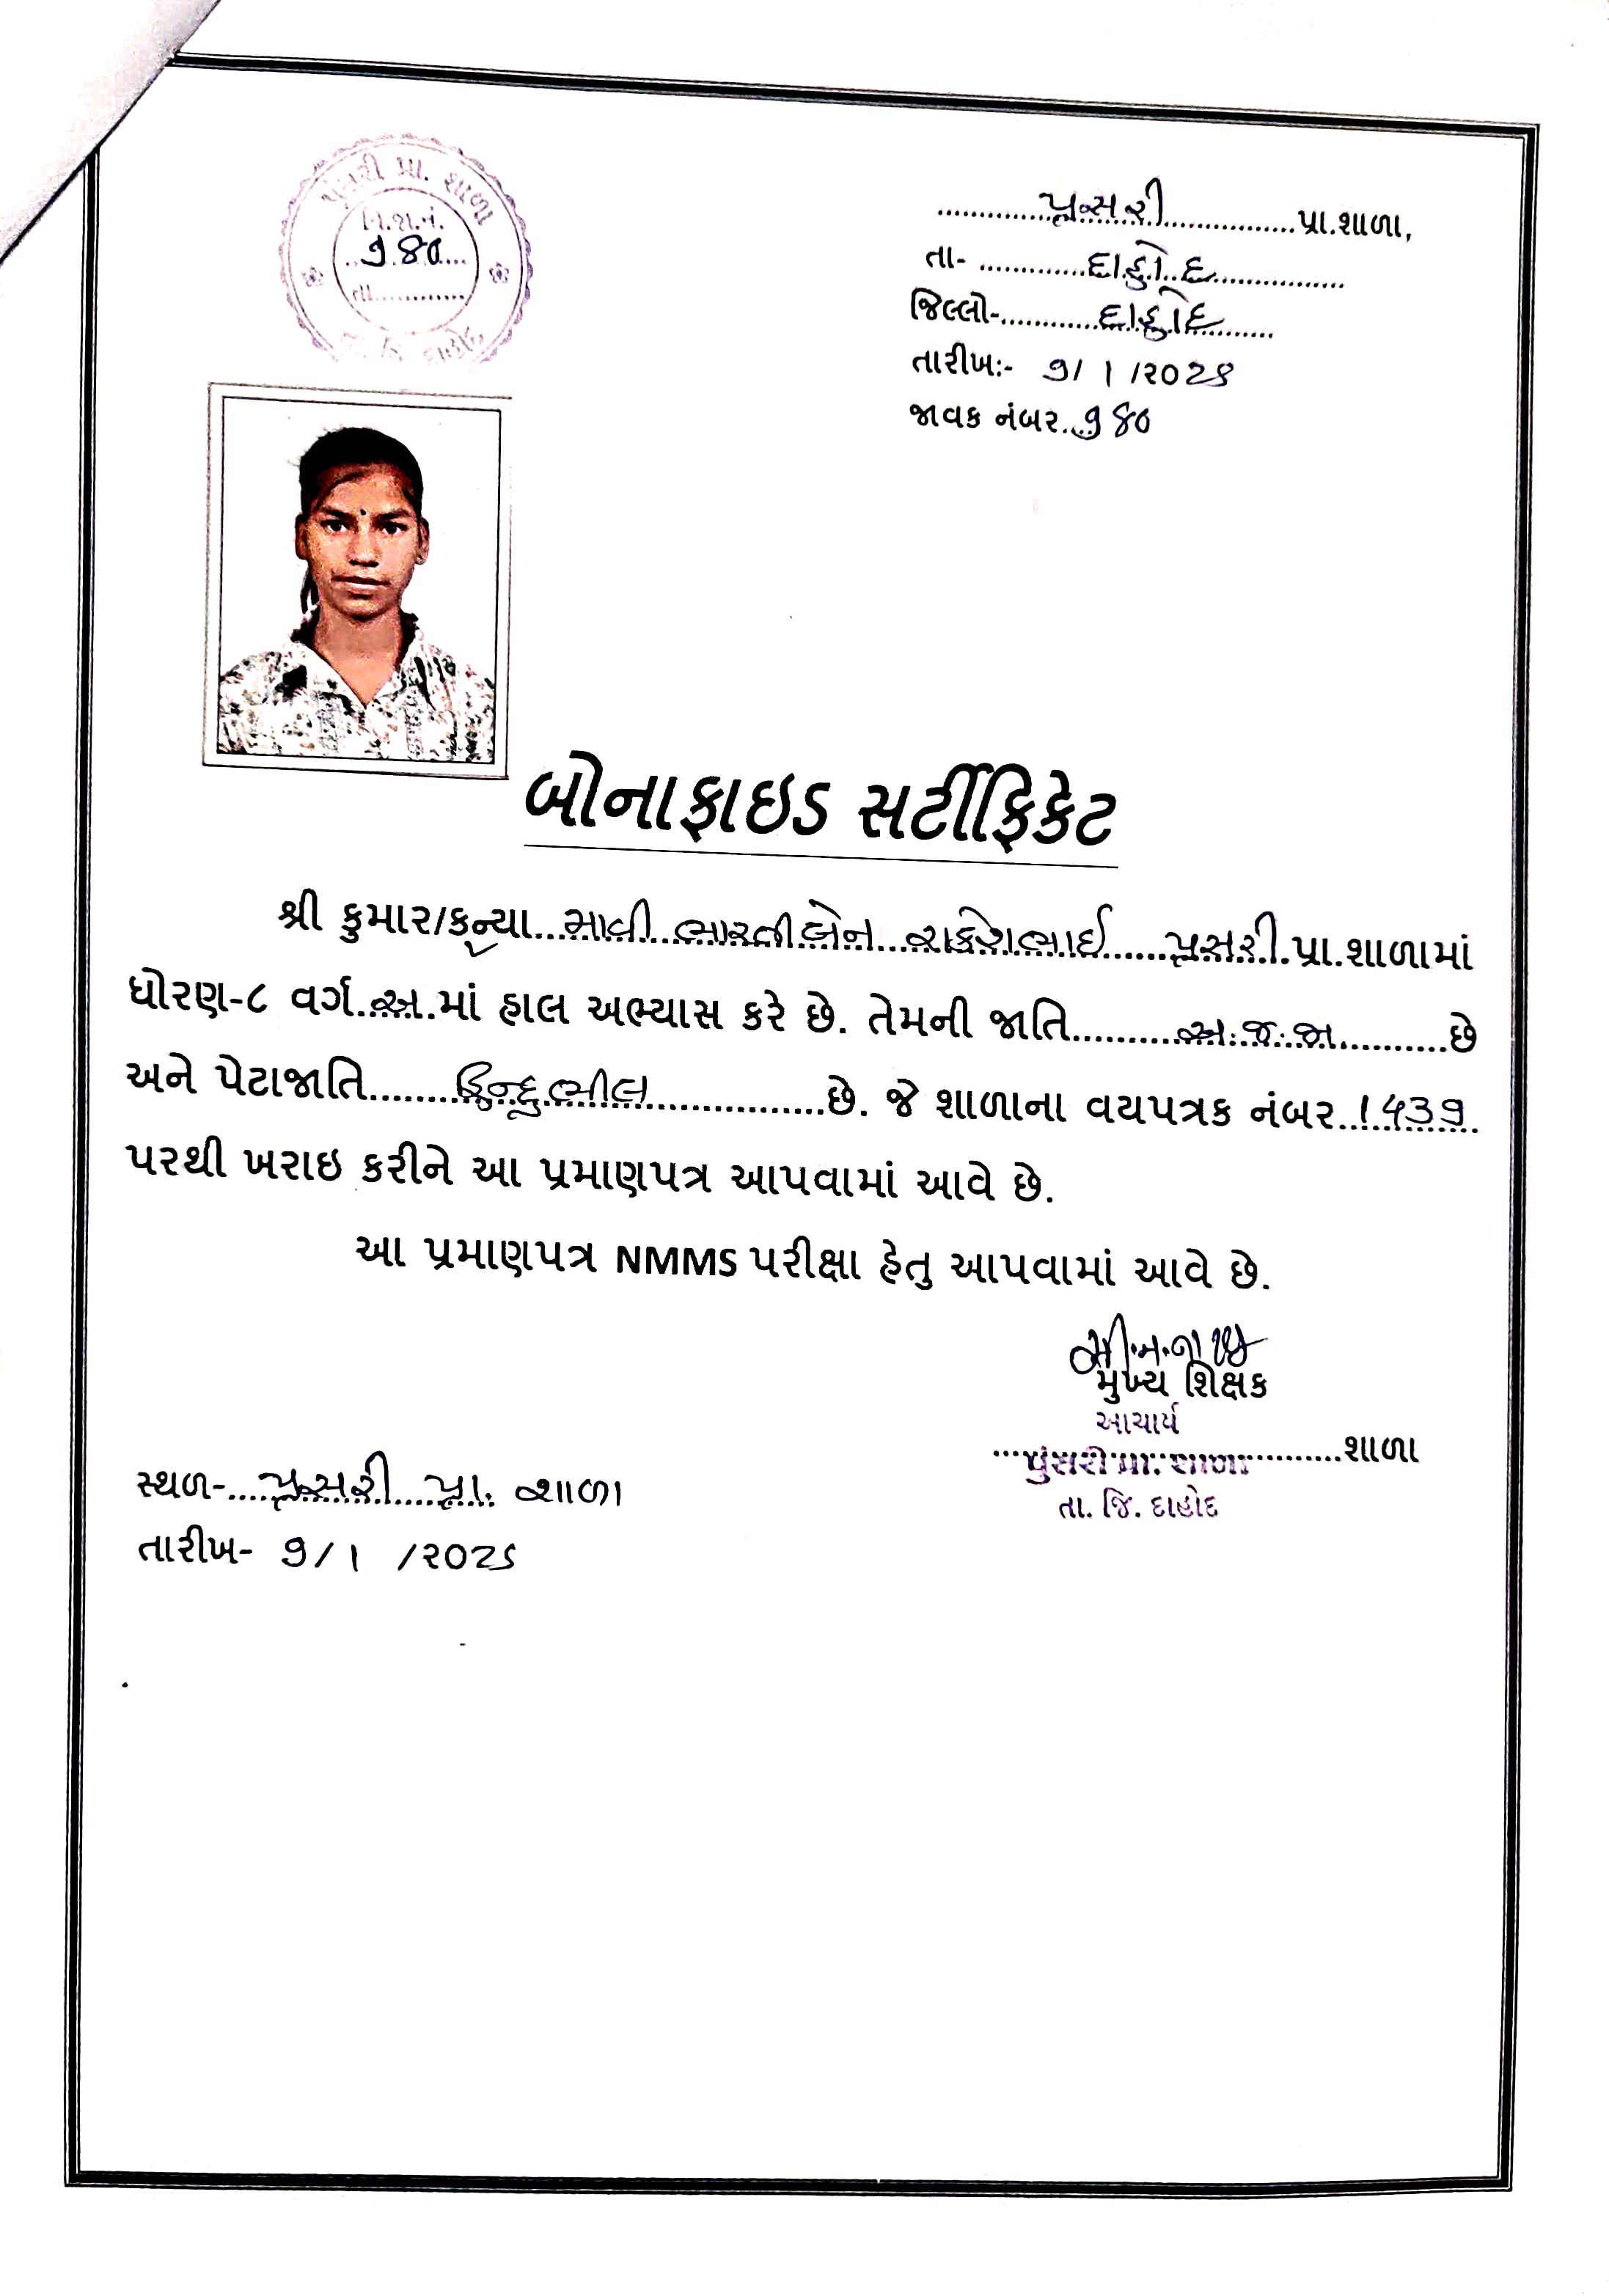 પુંસરી પ્રા. શાળા
વિ.શા.નં.
૧૪૦
તા............
જિ. દાહોદ
પુંસરી પ્રા.શાળા,
તા- દાહોદ
જિલ્લો- દાહોદ
તારીખઃ- ૧/૧/૨૦૨૪
જાવક નંબર ૧૪૦
બોનાફાઇડ સર્ટીફિકેટ
શ્રી કુમાર/કન્યા માવી ભારતીબેન રાકેશભાઈ પુંસરી પ્રા.શાળામાં
ધોરણ-૮ વર્ગ અ માં હાલ અભ્યાસ કરે છે. તેમની જાતિ અ.જ.જા છે
અને પેટાજાતિ હિન્દુભીલ છે. જે શાળાના વયપત્રક નંબર ૧૫૩૧
પરથી ખરાઇ કરીને આ પ્રમાણપત્ર આપવામાં આવે છે.
આ પ્રમાણપત્ર NMMS પરીક્ષા હેતુ આપવામાં આવે છે.
મુખ્ય શિક્ષક
આચાર્ય
પુંસરી પ્રા. શાળા શાળા
તા. જિ. દાહોદ
સ્થળ- પુંસરી પ્રા. શાળા
તારીખ- ૧/૧/૨૦૨૪